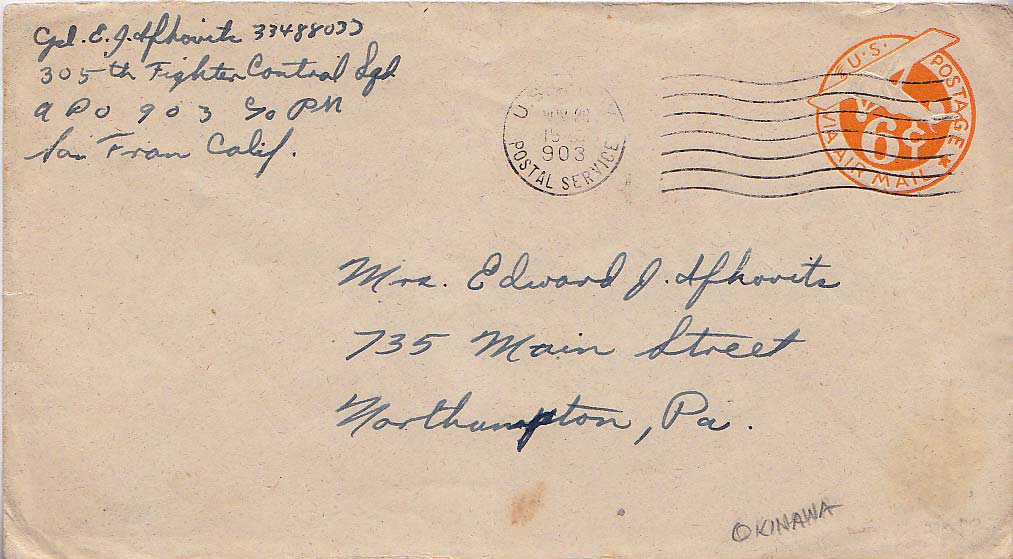 Cpl. E. J. Hfkovits 33488033
305th Fighter Control Sqd.
APO 903 c/o PM
San Fran Calif.
U.S.
NOV 20
15
903
POSTAL SERVICE
U.S. POSTAGE
6¢
VIA AIR MAIL
Mrs. Edward J. Hfkovits
735 Main Street
Northampton, Pa.
OKINAWA